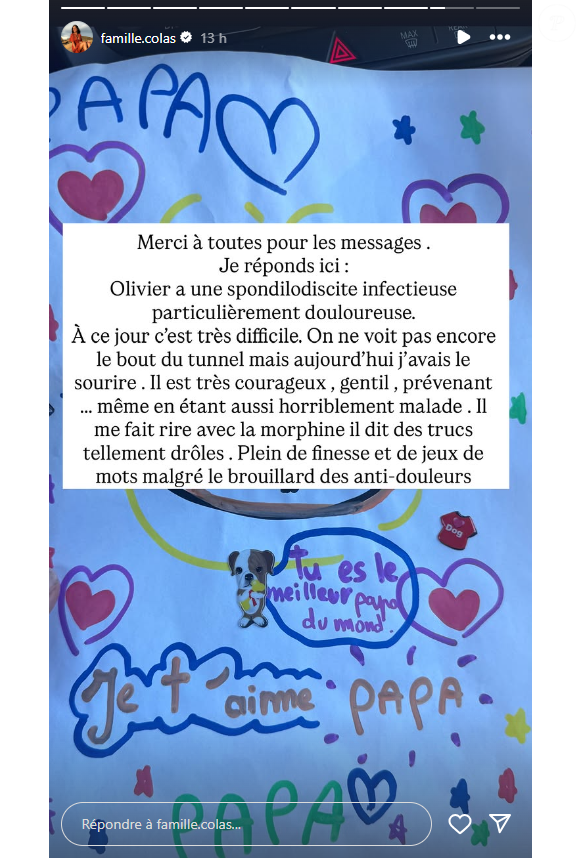 famille.colas 13 h
MAX
REAR
PAPA
Merci à toutes pour les messages .
Je réponds ici :
Olivier a une spondilodiscite infectieuse
particulièrement douloureuse.
À ce jour c’est très difficile. On ne voit pas encore
le bout du tunnel mais aujourd’hui j’avais le
sourire . Il est très courageux , gentil , prévenant
... même en étant aussi horriblement malade . Il
me fait rire avec la morphine il dit des trucs
tellement drôles . Plein de finesse et de jeux de
mots malgré le brouillard des anti-douleurs
Dog
Tu es le
meilleur papa
du mond.
Je t'aime PAPA
PAPA
Répondre à famille.colas...